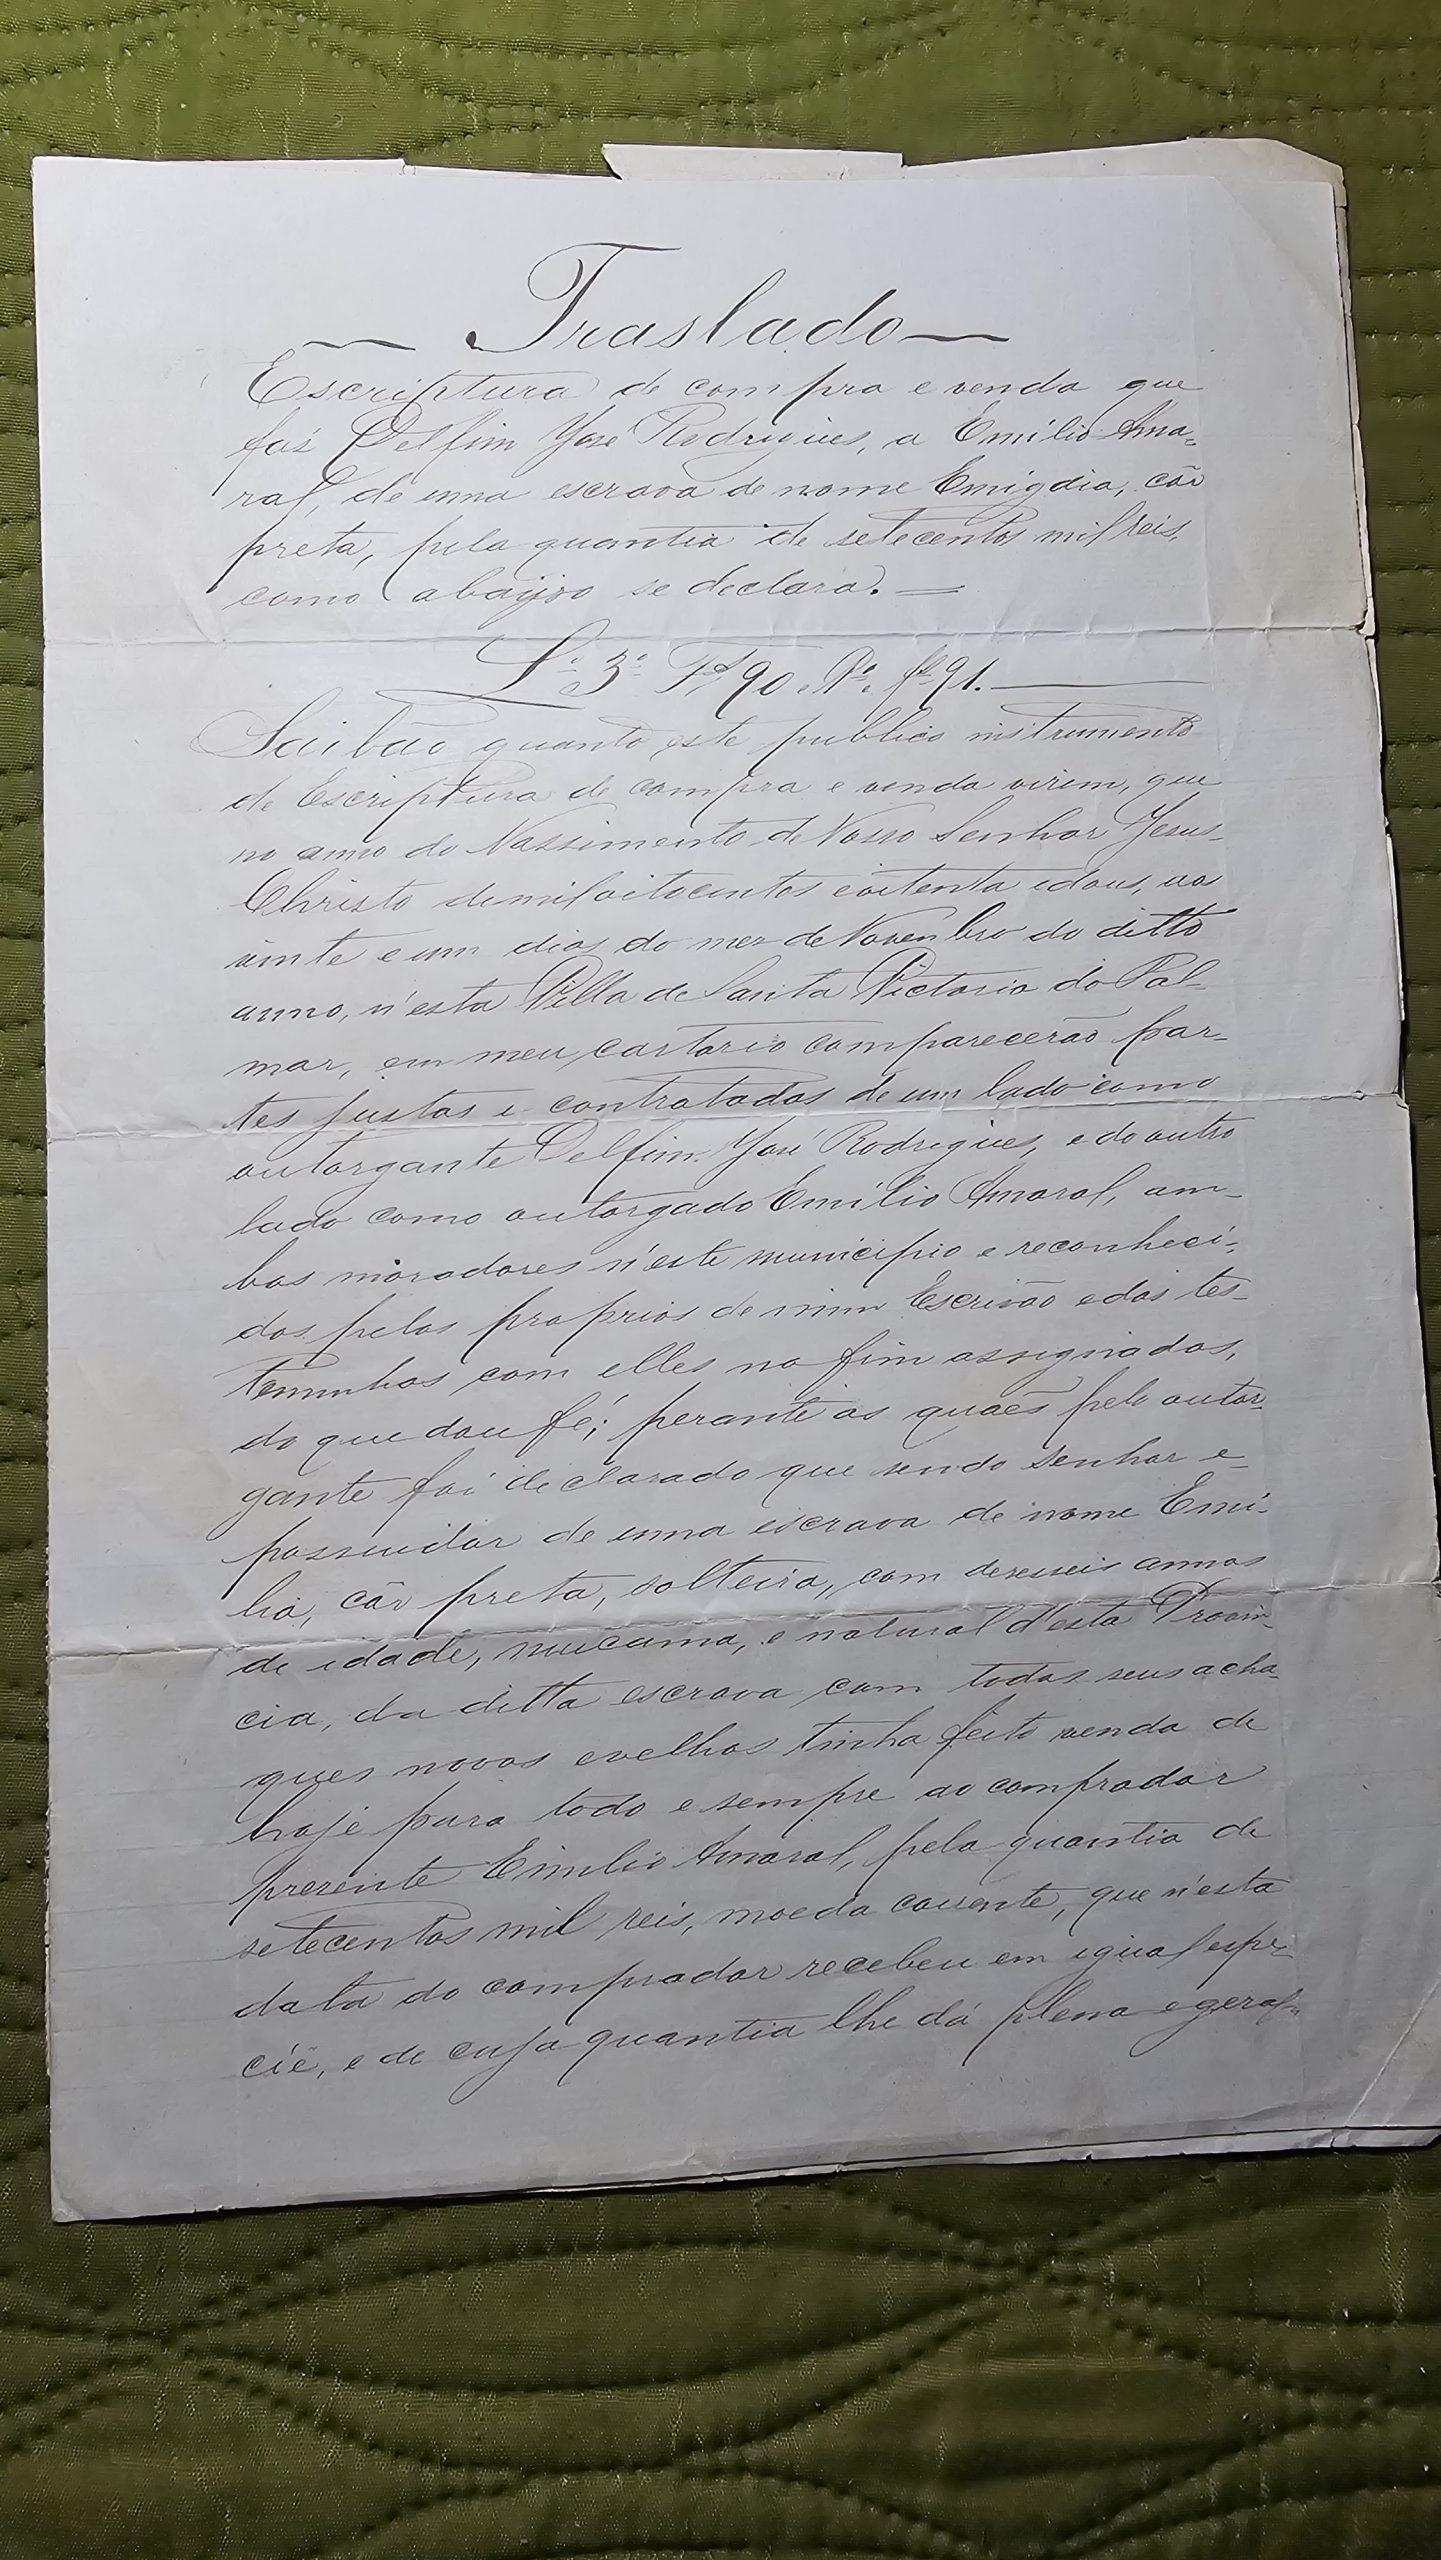 Traslado
Escriptura de compra e venda que
faz Delfim José Rodrigues, a Emílio Ama-
ral, de uma escrava de nome Emigdia, côr
preta, pela quantia de setecentos mil reis,
como abaijxo se declara.
L.º 3.º Fs 90 e Vº. e fs 91.
Saibão quanto este publico instrumento
de Escriptura de compra e venda virem, que
no anno do Nassimento de Nosso Senhor Jesus
Christo de mil oitocentos e oitenta e dous, aos
vinte e um dias do mez de Novenbro do ditto
anno, n'esta Villa de Santa Victoria do Pal-
mar, em meu cartorio comparecerão par-
tes justas e contratadas de um lado como
outorgante Delfim José Rodrigues, e do outro
lado como outorgado Emílio Amaral, am-
bos moradores n'este município e reconheci-
dos pelos proprios de mim Escrivão e das tes-
temunhas com elles no fim assignados,
do que dou fé; perante as quaes pelo outor-
gante foi declarado que sendo senhor e
possuidor de uma escrava de nome Emi-
lia, côr preta, solteira, com deseseis annos
de idade, mucama, e natural d'esta Provin-
cia, da ditta escrava com todos seus acha-
ques novos e velhos tinha feito venda de
hoje para todo e sempre ao comprador
presente Emilio Amaral, pela quantia de
setecentos mil reis, moeda corrente, que n'esta
data do comprador recebeu em igual espe-
cie, e de cuja quantia lhe dá plena e geral